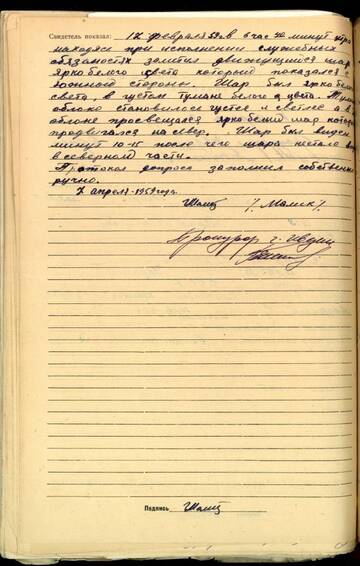 Свидетель показал: 17 февраля 59 г. в 6 час 40 минут утра
находясь при исполнении служебных
обязаностях заметил движущийся шар
яркобелого цвета который показался с
южной стороны Шар был яркобелого
света, в густом тумане белого цвета.
облако становилось густея и светлее а в
облаке просвещался яркобелый шар котор
продвигался на север. Шар был виден
минут 10-15 после чего шара нестало
в северной части.
Протокол допроса заполнил собствен
ручно.
7 апреля 1959 года.
Шалц /. Малик /.
Прокурор г. Ивдел
Подпись Шалц